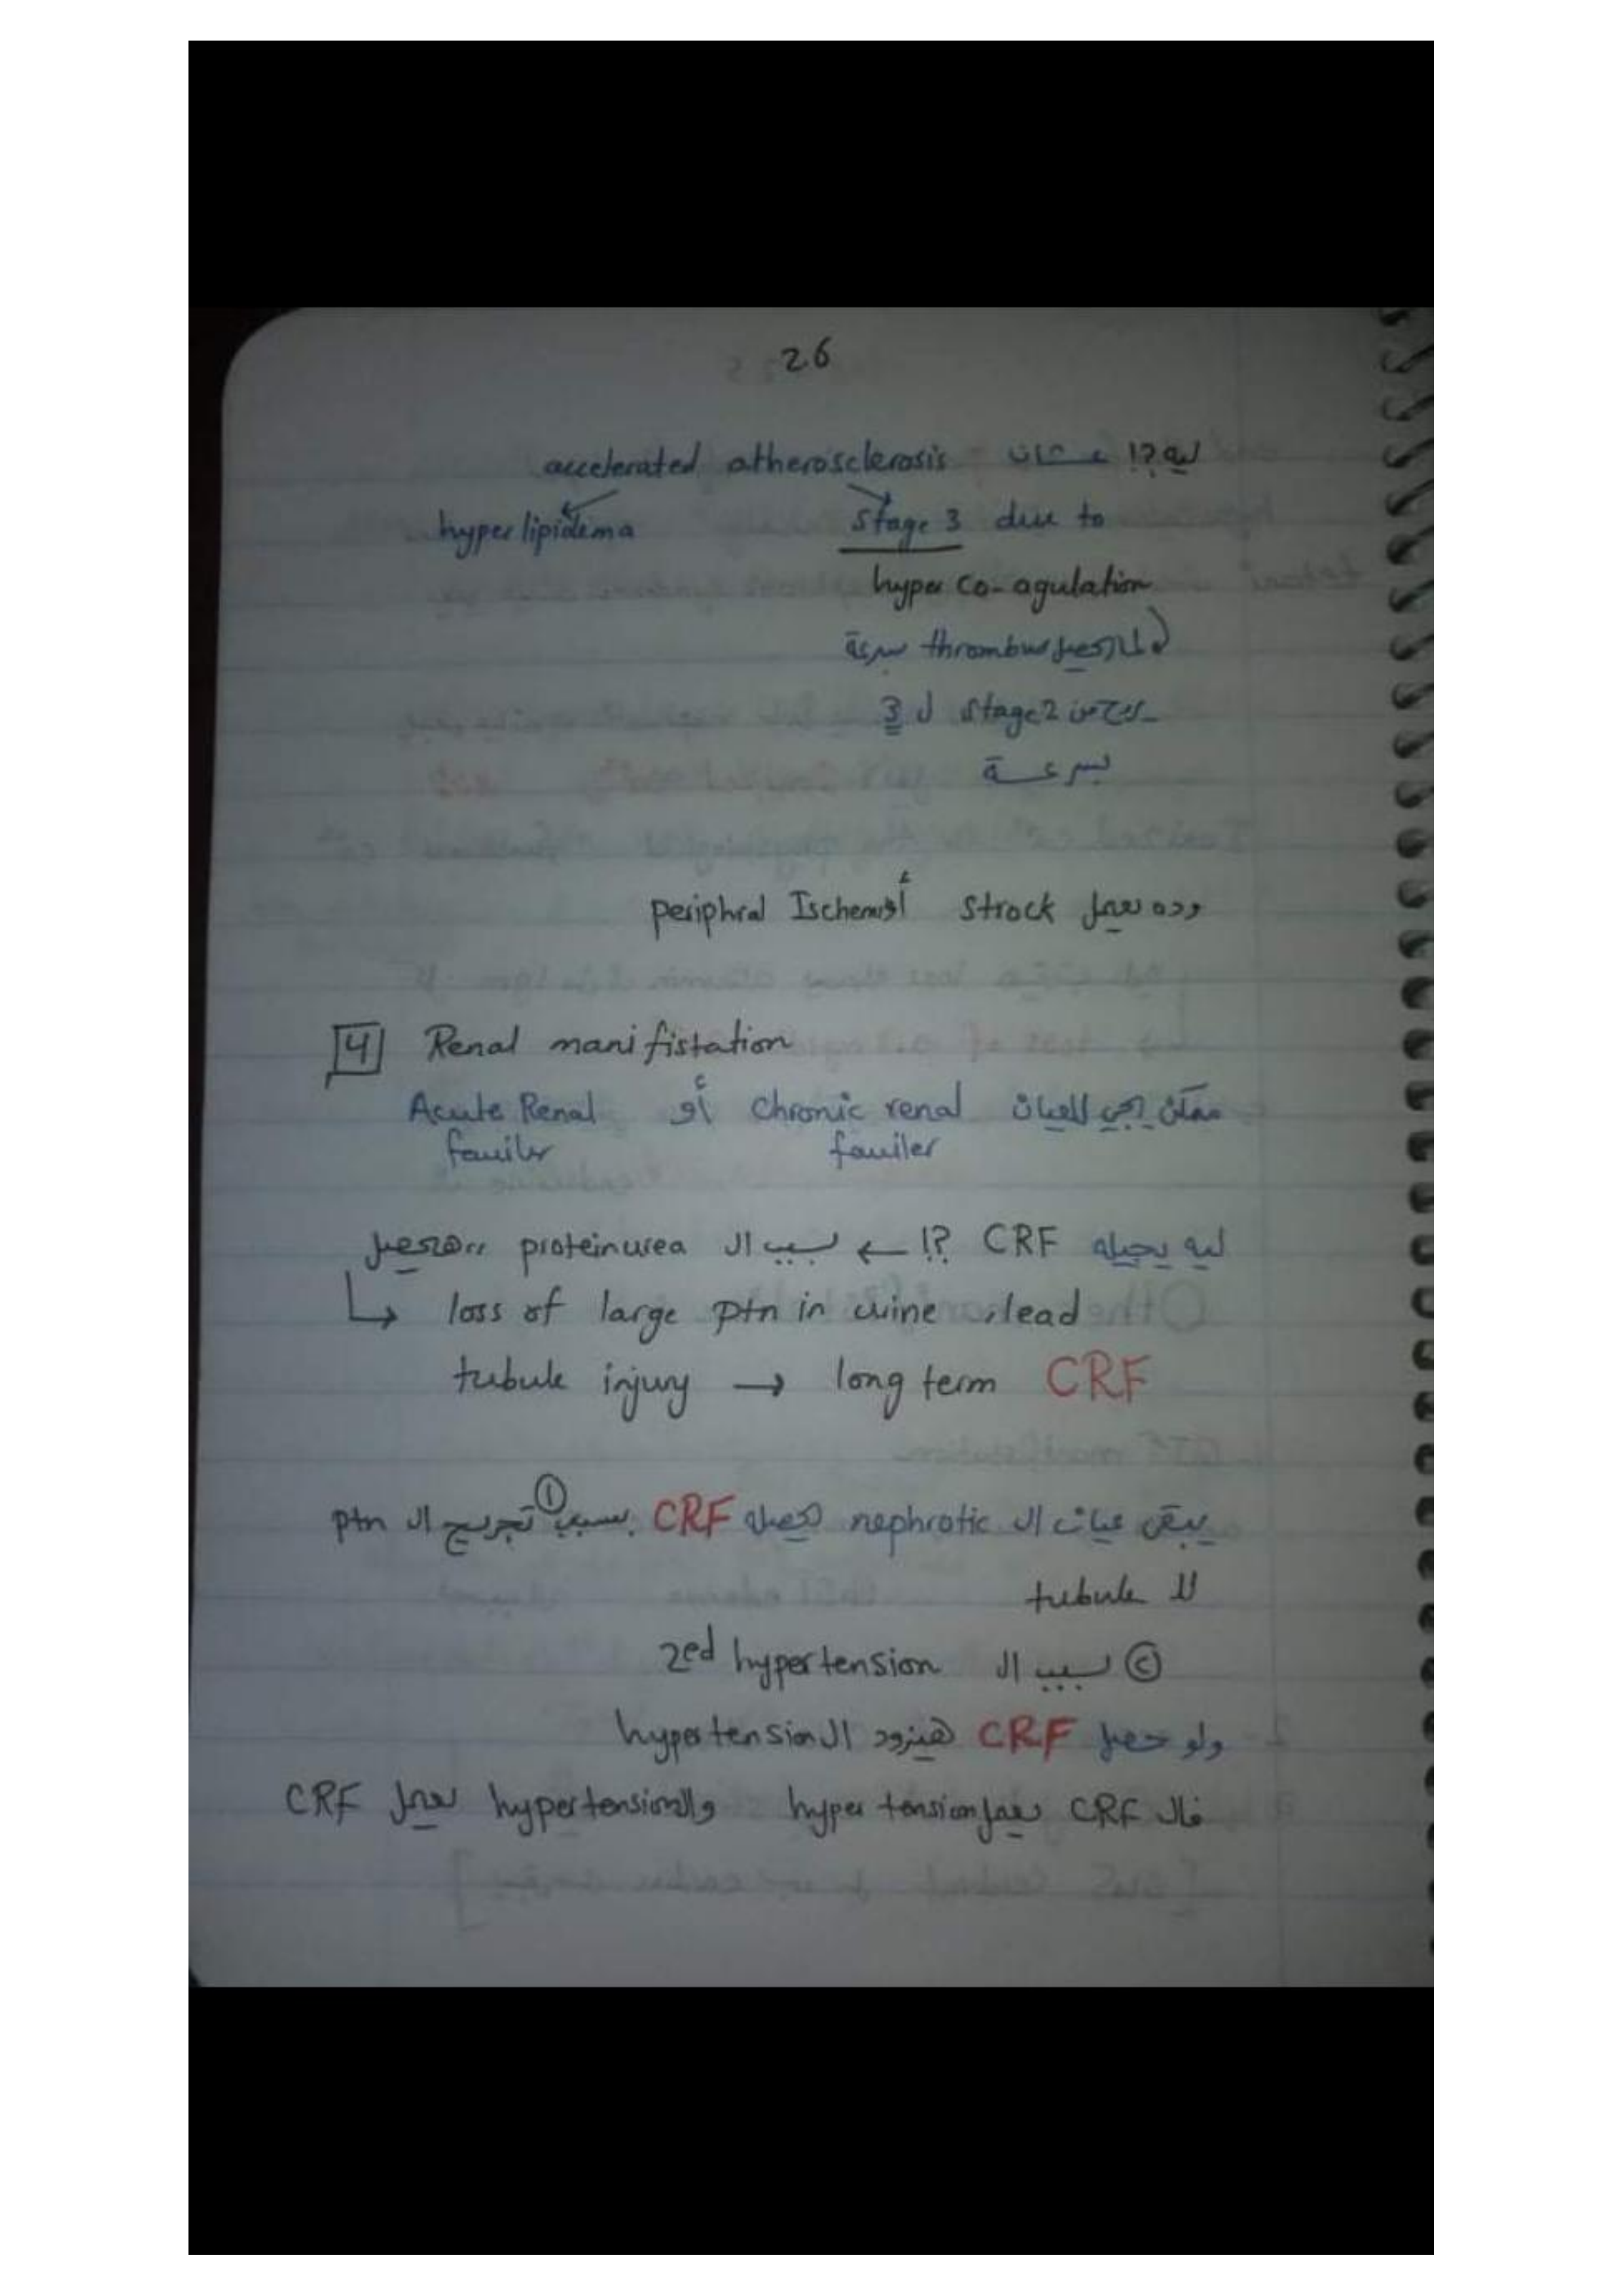 26
ليه ?! عشان accelerated atherosclerosis
hyperlipidema stage 3 due to
hyper co-agulation
thrombus بسرعة
يروح من stage 2 ل 3
بسرعة
وده يعمل strock أو periphral Ischemi
4 Renal manifistation
ممكن يجي للعيان chronic renal أو Acute Renal
fauiler fauiler
ليه يجيله CRF ?! ← بسبب ال proteinurea هيحصل
↳ loss of large ptn in urine lead
tubule injury → long term CRF
يبقى عيان ال nephrotic يحصله CRF بسبب ① تجريح ال ptn
لل tubule
② بسبب ال 2ed hypertension
ولو حصل CRF هيزود ال hypertension
فال CRF يعمل hyper tension وال hypertension يعمل CRF